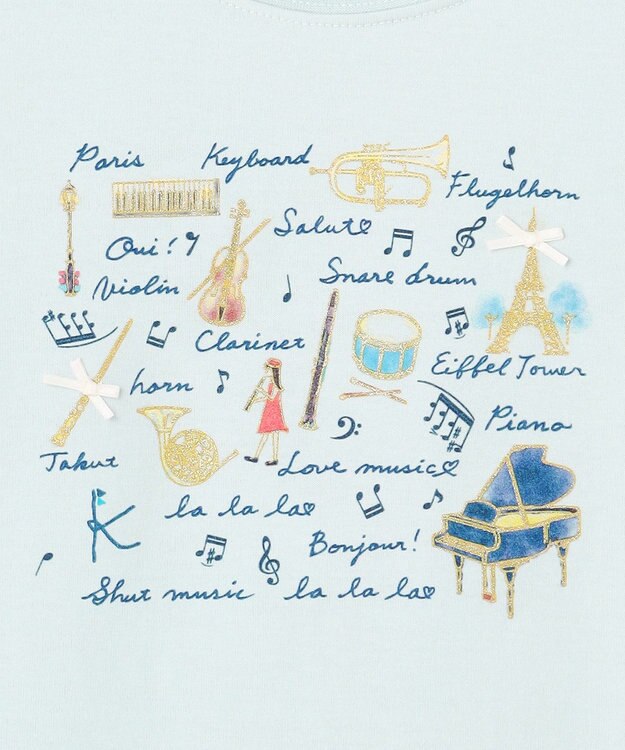 Paris Keyboard
Flugelhorn
Salut
Oui!
Violin
Snare drum
Clarinet
Eiffel Tower
horn
Piano
Takut
Love music
K la la la
Bonjour!
Shut music la la la